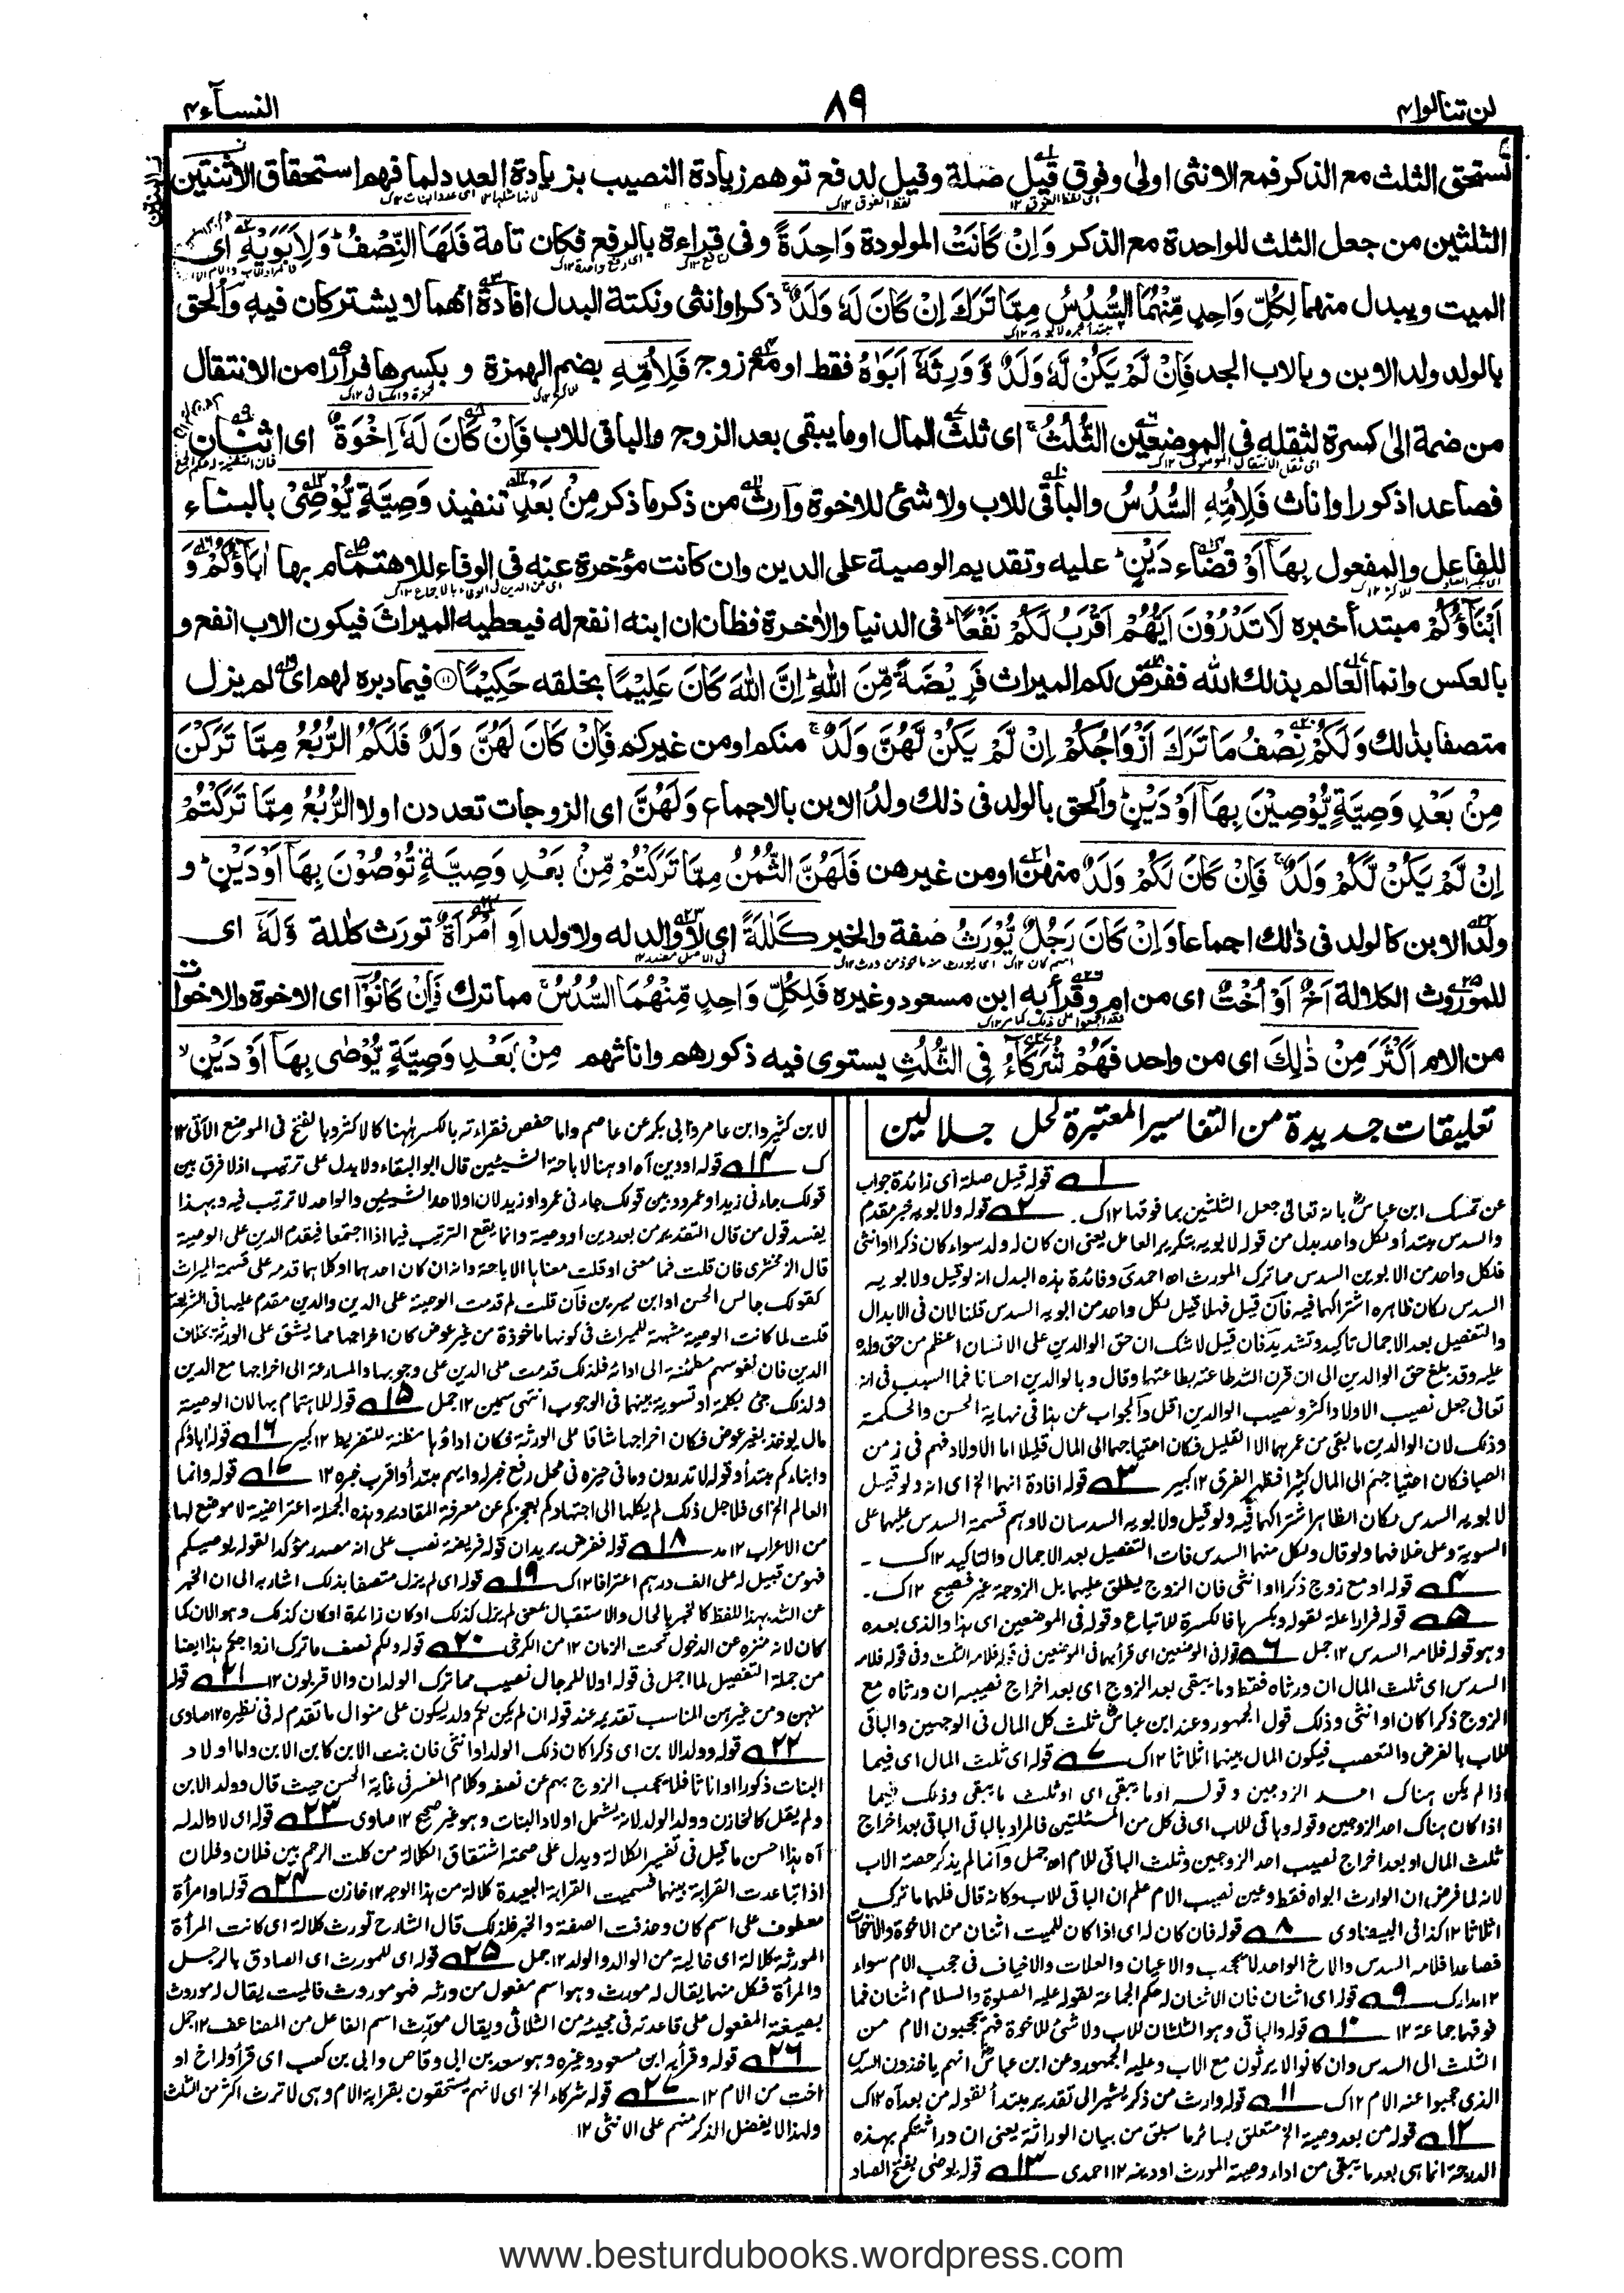 لن تنالوا ٤
٨٩
النسآء ٤
تستحق الثلث مع الذكر فمع الانثى اولى وفوق قيل صلة وقيل لدفع توهم زيادة النصيب بزيادة العدد لما فهم استحقاق الاثنتين
الثلثين من جعل الثلث للواحدة مع الذكر وَاِنْ كَانَتْ المولودة وَاحِدَةً وفى قراءة بالرفع فكان تامة فَلَهَا النِّصْفُ ؕ وَلِاَبَوَيْهِ اى
الميت ويبدل منهما لِكُلِّ وَاحِدٍ مِّنْهُمَا السُّدُسُ مِمَّا تَرَكَ اِنْ كَانَ لَهٗ وَلَدٌ ۚ ذكر او انثى ونكتة البدل افادة انهما لا يشتركان فيه والحق
بالولد ولد الابن وبالاب الجد فَاِنْ لَّمْ يَكُنْ لَّهٗ وَلَدٌ وَّوَرِثَهٗٓ اَبَوٰهُ فقط او مع زوج فَلِاُمِّهِ بضم الهمزة وبكسرها فرارا من الانتقال
من ضمة الى كسرة لثقله فى الموضعين الثُّلُثُ ۚ اى ثلث المال او ما يبقى بعد الزوج والباقى للاب فَاِنْ كَانَ لَهٗٓ اِخْوَةٌ اى اثنان
فصاعدا ذكورا واناث فَلِاُمِّهِ السُّدُسُ والباقى للاب ولا شئ للاخوة وارث من ذكر ما ذكر مِنْ بَعْدِ تنفيذ وَصِيَّةٍ يُّوْصِىْ بالبناء
للفاعل والمفعول بِهَآ اَوْ قضاء دَيْنٍ ؕ عليه وتقديم الوصية على الدين وان كانت مؤخرة عنه فى الوفاء للاهتمام بها اٰبَآؤُكُمْ وَ
اَبْنَآؤُكُمْ مبتدأ خبره لَا تَدْرُوْنَ اَيُّهُمْ اَقْرَبُ لَكُمْ نَفْعًا ؕ فى الدنيا والاٰخرة فظان ان ابنه انفع له فيعطيه الميراث فيكون الاب انفع و
بالعكس وانما العالم بذلك الله ففرض لكم الميراث فَرِيْضَةً مِّنَ اللّٰهِ ؕ اِنَّ اللّٰهَ كَانَ عَلِيْمًا بخلقه حَكِيْمًا ۝۱۱ فيما دبره لهم اى لم يزل
متصفا بذلك وَلَكُمْ نِصْفُ مَا تَرَكَ اَزْوَاجُكُمْ اِنْ لَّمْ يَكُنْ لَّهُنَّ وَلَدٌ ۚ منكم او من غيركم فَاِنْ كَانَ لَهُنَّ وَلَدٌ فَلَكُمُ الرُّبُعُ مِمَّا تَرَكْنَ
مِنْ بَعْدِ وَصِيَّةٍ يُّوْصِيْنَ بِهَآ اَوْ دَيْنٍ ؕ والحق بالولد فى ذلك ولد الابن بالاجماع وَلَهُنَّ اى الزوجات تعددن او لا الرُّبُعُ مِمَّا تَرَكْتُمْ
اِنْ لَّمْ يَكُنْ لَّكُمْ وَلَدٌ ۚ فَاِنْ كَانَ لَكُمْ وَلَدٌ منهن او من غيرهن فَلَهُنَّ الثُّمُنُ مِمَّا تَرَكْتُمْ مِّنْ بَعْدِ وَصِيَّةٍ تُوْصُوْنَ بِهَآ اَوْ دَيْنٍ ؕ و
ولد الابن كالولد فى ذلك اجماعا وَاِنْ كَانَ رَجُلٌ يُّوْرَثُ صفة والخبر كَلٰلَةً اى لا والد له ولا ولد اَوِ امْرَاَةٌ تورث كلٰلة وَّلَهٗٓ اى
للموروث الكلالة اَخٌ اَوْ اُخْتٌ اى من ام وقرأ به ابن مسعود وغيره فَلِكُلِّ وَاحِدٍ مِّنْهُمَا السُّدُسُ ۚ مما ترك فَاِنْ كَانُوْٓا اى الاخوة والاخوات
من الام اَكْثَرَ مِنْ ذٰلِكَ اى من واحد فَهُمْ شُرَكَآءُ فِى الثُّلُثِ يستوى فيه ذكورهم واناثهم مِنْ بَعْدِ وَصِيَّةٍ يُّوْصٰى بِهَآ اَوْ دَيْنٍ ۙ
تعليقات جديدة من التفاسير المعتبرة لحل جلالين
١ قوله قيل صلة اى زائدة جواب
عن تمسك ابن عباس بانه تعالى جعل الثلثين بما فوقها ١٢ك. ٢ قوله ولابويه خبر مقدم
والسدس مبتدأ ولكل واحد بدل من قوله لابويه بتكرير العامل يعنى ان كان له ولد سواء كان ذكرا او انثى
فلكل واحد من الابوين السدس مما ترك المورث اه احمدى وفائدة هذه البدل انه لو قيل ولابويه
السدس لكان ظاهره اشتراكهما فيه فان قيل فهلا قيل لكل واحد من ابويه السدس قلنا لان فى الابدال
والتفصيل بعد الاجمال تاكيد وتشديد فان قيل لا شك ان حق الوالدين على الانسان اعظم من حق ولده
عليه وقد بلغ حق الوالدين الى ان قرن الله طاعته بطاعتهما وقال وبالوالدين احسانا فما السبب فى انه
تعالى جعل نصيب الاولاد اكثر ونصيب الوالدين اقل والجواب عن هذا فى نهاية الحسن والحكمة
وذلك لان الوالدين ما بقى من عمرهما الا القليل فكان احتياجهما الى المال قليلا اما الاولاد فهم فى زمن
الصبا فكان احتياجهم الى المال كثيرا فظهر الفرق ١٢ كبير ٣ قوله افادة انهما الخ اى انه ولو قيل
لابويه السدس لكان الظاهر اشتراكهما فيه ولو قيل ولابويه السدسان لاوهم قسمة السدس عليهما على
السوية وعلى خلافهما ولو قال ولكل منهما السدس فات التفصيل بعد الاجمال والتاكيد ١٢ك۔
٤ قوله او مع زوج ذكرا او انثى فان الزوج يطلق عليهما بل الزوجة غير فصيح ١٢ك۔
٥ قوله فرارا علة لقوله وبكسرها فالكسرة للاتباع وقوله فى الموضعين اى هذا والذى بعده
وهو قوله فلامه السدس ١٢ جمل ٦ قوله فى الموضعين اى قرأ بهما فى الموضعين فى قوله فلامه الثلث وفى قوله فلامه
السدس اى ثلث المال ان ورثاه فقط وما يبقى بعد الزوج اى بعد اخراج نصيبه ان ورثاه مع
الزوج ذكرا كان او انثى وذلك قول الجمهور وعند ابن عباس ثلث كل المال فى الوجهين والباقى
للاب بالفرض والتعصب فيكون المال بينهما اثلاثا ١٢ك ٧ قوله اى ثلث المال اى فيما
اذا لم يكن هناك احد الزوجين وقوله او ما يبقى اى او ثلث ما يبقى وذلك فيما
اذا كان هناك احد الزوجين وقوله وباقى للاب اى فى كل من المسئلتين فالمراد بالباقى الباقى بعد اخراج
ثلث المال او بعد اخراج نصيب احد الزوجين وثلث الباقى للام اه جمل وانما لم يذكر حصة الاب
لانه لما فرض ان الوارث ابواه فقط وعين نصيب الام علم ان الباقى للاب وكانه قال فلهما ما ترك
اثلاثا ١٢ كذا فى البيضاوى ٨ قوله فان كان له اى اذا كان للميت اثنان من الاخوة والاخوات
فصاعدا فلامه السدس والاخ الواحد لا يحجب والاعيان والعلات والاخياف فى حجب الام سواء
١٢ مدارك ٩ قوله اى اثنان فان الاثنان له حكم الجماعة لقوله عليه الصلوة والسلام اثنان فما
فوقهما جماعة ١٢ ١٠ قوله والباقى وهو الثلثان للاب ولا شئ للاخوة فهم يحجبون الام من
الثلث الى السدس وان كانوا لا يرثون مع الاب وعليه الجمهور وعن ابن عباس انهم ياخذون السدس
الذى حجبوا عنه الام ١٢ك ١١ قوله وارث من ذكر يشير الى تقدير مبتدأ لقوله من بعد اه ١٢ك
١٢ قوله من بعد وصية الخ متعلق بسائر ما سبق من بيان الوراثة يعنى ان وراثتكم بهذه
الدرجة انما هى بعد ما يبقى من اداء وصية المورث او دينه ١٢ احمدى ١٣ قوله يوصى بفتح الصاد
لابن كثير وابن عامر وابى بكر عن عاصم واما حفص فقراءته بالكسر ههنا كالاكثر وبالفتح فى الموضع الآتى ١٢
ك ١٤ قوله او دين اه او هنا لاباحة الشيئين قال ابو البقاء ولا يدل على ترتيب اذ لا فرق بين
قولك جاءنى زيد او عمرو وبين قولك جاءنى عمرو او زيد لان او لاحد الشيئين والواحد لا ترتيب فيه وبهذا
يفسد قول من قال التقدير من بعد دين او وصية وانما يقع الترتيب فيما اذا اجتمعا فيقدم الدين على الوصية
قال الزمخشرى فان قلت فما معنى او قلت معناها الاباحة وانه ان كان احدهما او كلاهما قدم على قسمة الميراث
كقولك جالس الحسن او ابن سيرين فان قلت لم قدمت الوصية على الدين والدين مقدم عليها فى الشريعة
قلت لما كانت الوصية مشبهة للميراث فى كونها ماخوذة من غير عوض كان اخراجها مما يشق على الورثة بخلاف
الدين فان نفوسهم مطمئنة الى ادائه فلذلك قدمت على الدين على وجوبها والمسارعة الى اخراجها مع الدين
ولذلك جئ بكلمة او تسوية بينهما فى الوجوب انتهى سمين ١٢ جمل ١٥ قوله للاهتمام بها لان الوصية
مال يوخذ بغير عوض فكان اخراجها شاقا على الورثة فكان اداؤها مظنة للتفريط ١٢ كبير ١٦ قوله اباؤكم
وابناءكم مبتدأ وقوله لا تدرون وما فى حيزه فى محل رفع خبر له وايهم مبتدأ واقرب خبره ١٢ ١٧ قوله وانما
العالم الخ اى فلاجل ذلك لم يكلها الى اجتهادكم لعجزكم عن معرفة المقادير وهذه الجملة اعتراضية لا موضع لها
من الاعراب ١٢ مد ١٨ قوله ففرض يريد ان قوله فريضة نصب على انه مصدر مؤكد لقوله يوصيكم
فهو من قبيل له على الف درهم اعترافا ١٢ك ١٩ قوله اى لم يزل متصفا بذلك اشار به الى ان الخبر
عن الله بهذا اللفظ كالخبر بالحال والاستقبال بمعنى لم يزل كذلك او كان زائدة او كان كذلك وهو الان كما
كان لانه منزه عن الدخول تحت الزمان ١٢ من الكرخى ٢٠ قوله ولكم نصف ما ترك ازواجكم هذا ايضا
من جملة التفصيل لما اجمل فى قوله اولا للرجال نصيب مما ترك الوالدان والاقربون ١٢ ٢١ قوله
منهن ومن غيرهن المناسب تقديمه عند قوله ان لم يكن لكم ولد ليكون على منوال ما تقدم له فى نظيره ١٢ صاوى
٢٢ قوله وولد الابن اى ذكرا كان ذلك الولد او انثى فان بنت الابن كابن الابن واما اولاد
البنات ذكورا او اناثا فلا يحجب الزوج بهم عن نصفه وكلام المفسر فى غاية الحسن حيث قال وولد الابن
ولم يقل كالخازن وولد الولد لانه يشمل اولاد البنات وهو غير صحيح ١٢ صاوى ٢٣ قوله اى لا والد له
اه هذا احسن ما قيل فى تفسير الكلالة ويدل على صحته اشتقاق الكلالة من كلت الرحم بين فلان وفلان
اذا تباعدت القرابة بينهما فسميت القرابة البعيدة كلالة من هذا الوجه ١٢ خازن ٢٤ قوله او امرأة
معطوف على اسم كان وحذفت الصفة والخبر فلذلك قال الشارح تورث كلالة اى كانت المرأة
المورثة كلالة اى خالية من الوالد والولد ١٢ جمل ٢٥ قوله اى للمورث اى الصادق بالرجل
والمرأة فكل منهما يقال له مورث وهو اسم مفعول من ورثه فهو موروث فالميت يقال له موروث
بصيغة المفعول على قاعدته فى مجيئه من الثلاثى ويقال مورث اسم الفاعل من المضاعف ١٢ جمل
٢٦ قوله وقرأ به ابن مسعود وغيره وهو سعد بن ابى وقاص وابى بن كعب اى قرأ وله اخ او
اخت من الام ١٢ ٢٧ قوله شركاء الخ اى لانهم يستحقون بقرابة الام وهى لا ترث اكثر من الثلث
ولهذا لا يفضل الذكر منهم على الانثى ١٢
www.besturdubooks.wordpress.com